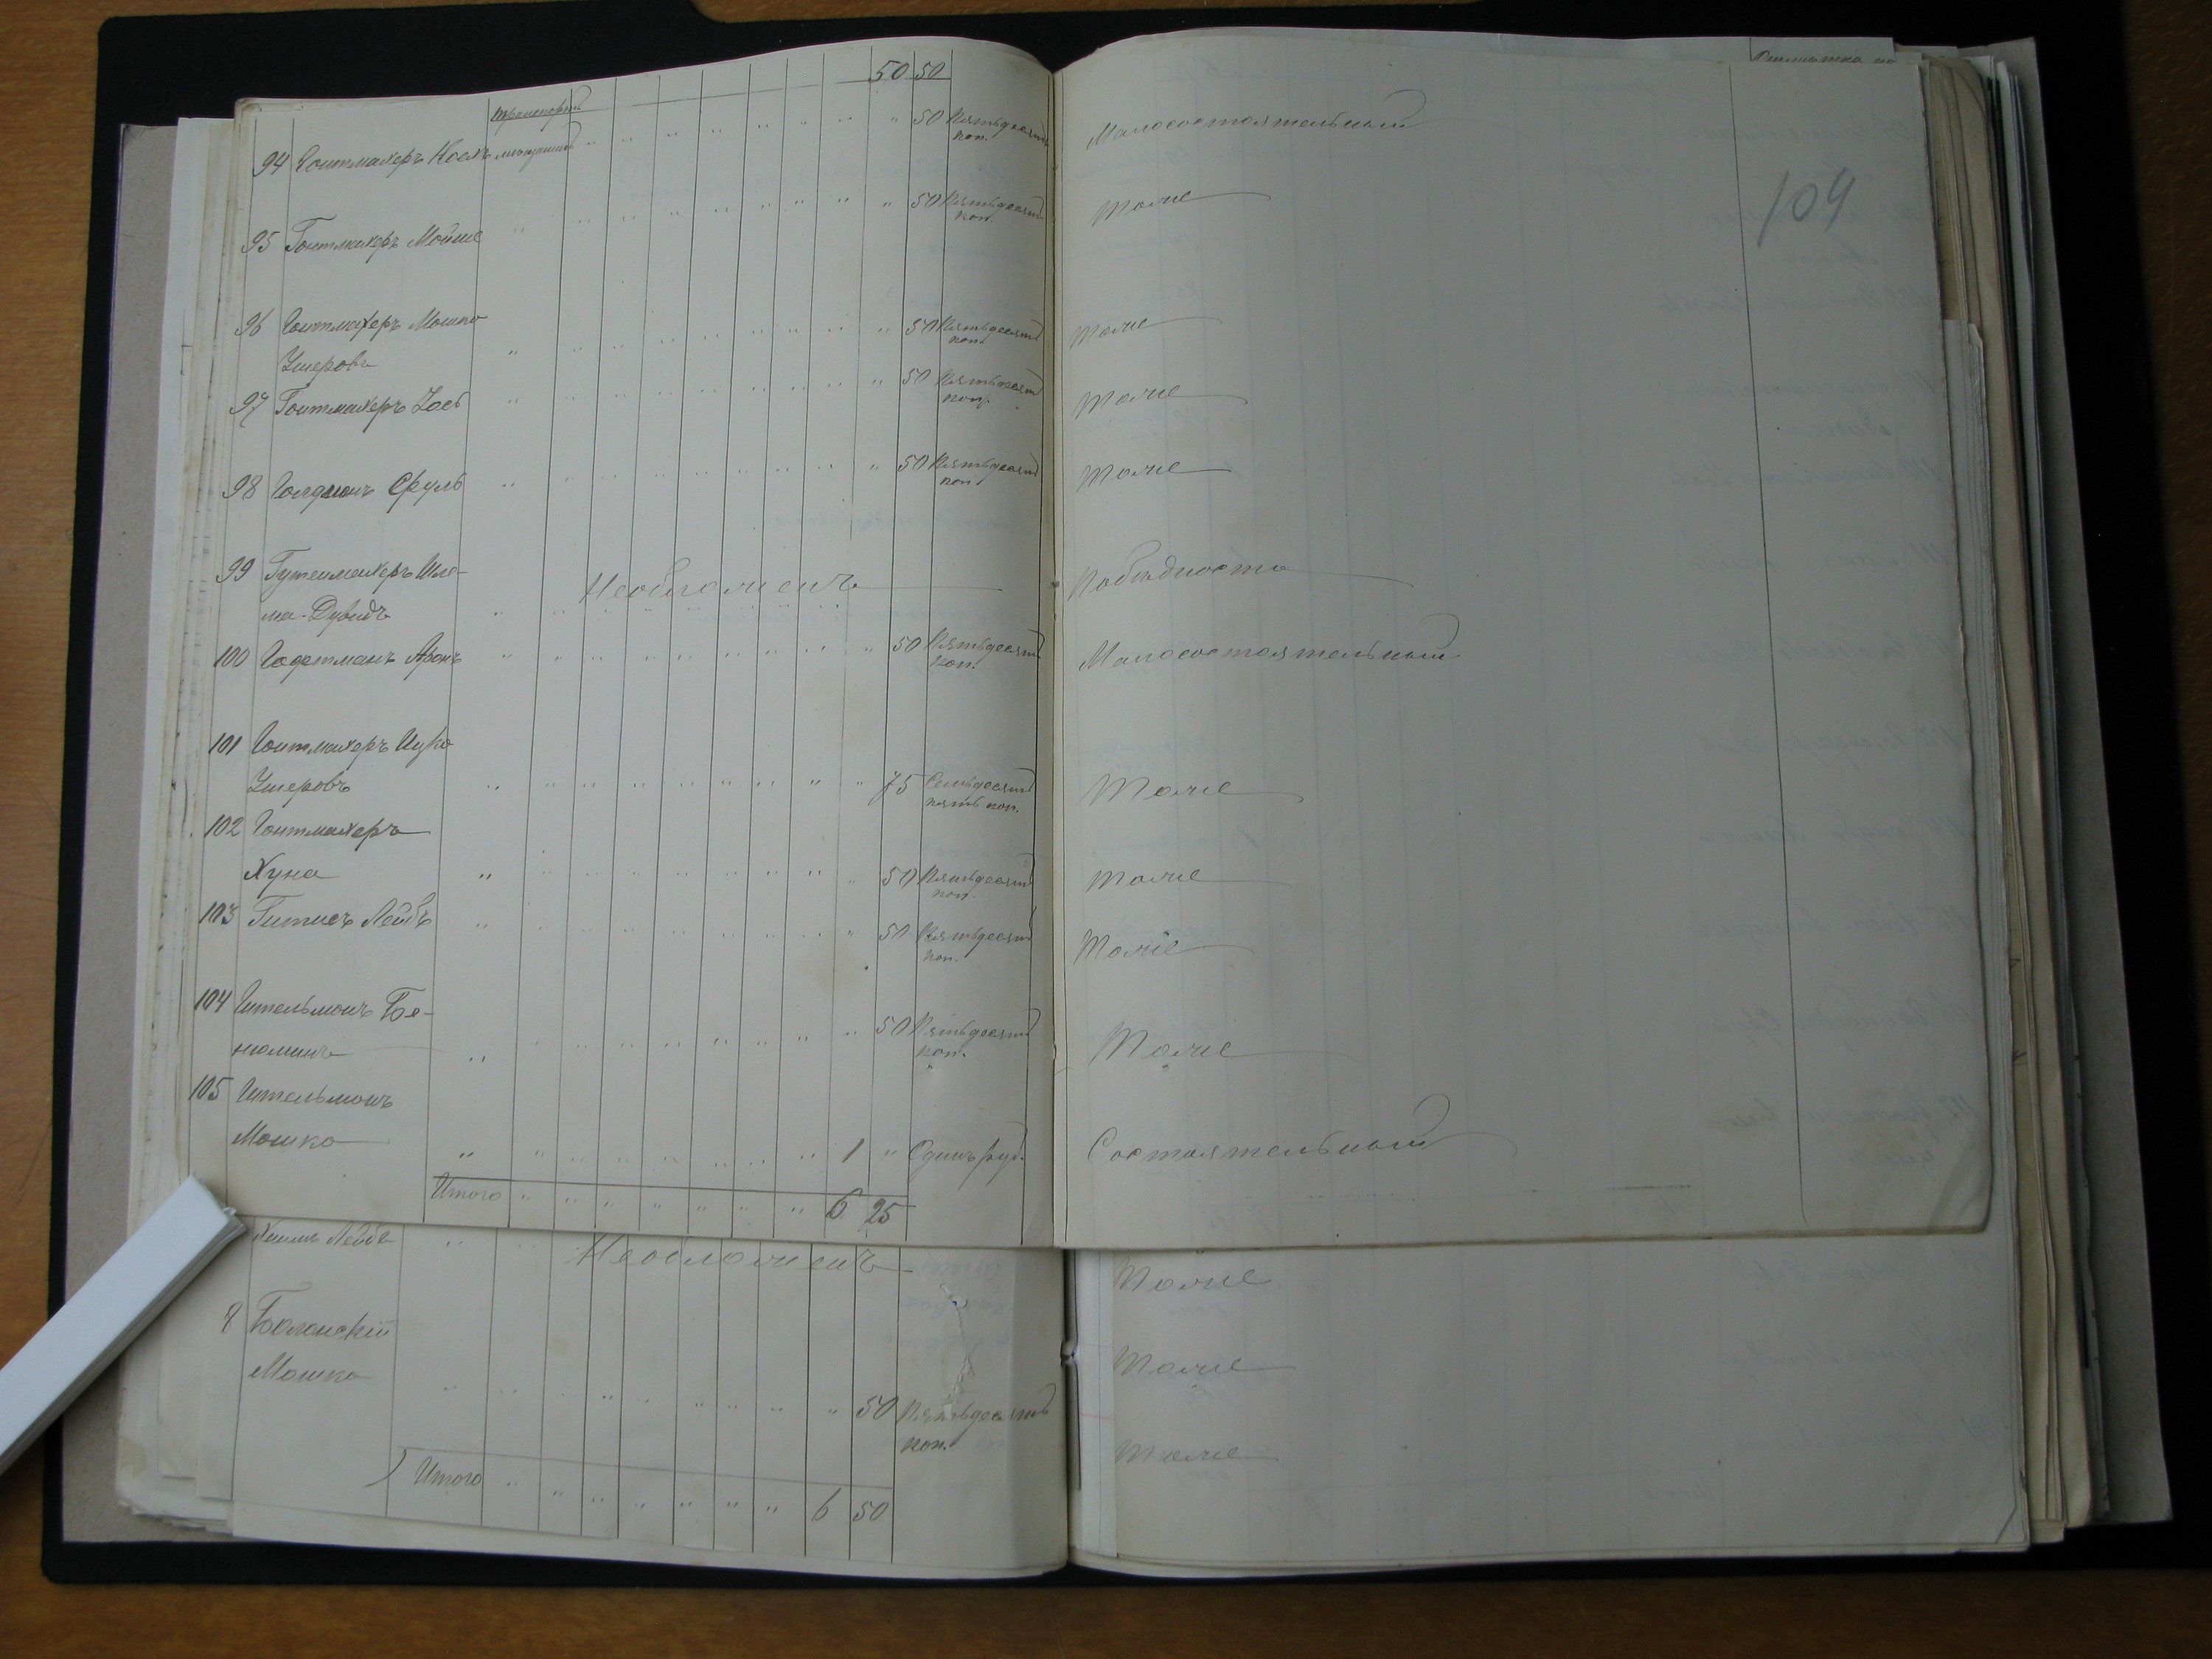 50 50
94 Гоитмахеръ Іосль мѣщанинъ " " " " " " " " 50 Пятьдесятъ коп. Малосостоятельный
109
95 Гоитмахеръ Мойше " " " " " " " " " 50 Пятьдесятъ коп. Тоже
96 Гоитмахеръ Мошко
Умеровъ " " " " " " " " " 50 Пятьдесятъ коп. Тоже
97 Гоитмахеръ Іось " " " " " " " " " 50 Пятьдесятъ коп. Тоже
98 Сруль " " " " " " " " " 50 Пятьдесятъ коп. Тоже
99 Гутенмахеръ Шле-
ма-Дувидъ " Необложенъ По бѣдности
100 Аронъ " " " " " " " " " 50 Пятьдесятъ коп. Малосостоятельный
101 Гоитмахеръ Ицко
Умеровъ " " " " " " " " " 75 Семьдесятъ пять коп. Тоже
102 Гоитмахеръ
Хуна " " " " " " " " " 50 Пятьдесятъ коп. Тоже
103 Гитисъ Лейбъ " " " " " " " " " 50 Пятьдесятъ коп. Тоже
104 Гительманъ Бе-
ніоминъ " " " " " " " " " 50 Пятьдесятъ коп. Тоже
105 Гительманъ
Мошко " " " " " " " " 1 " Одинъ руб. Состоятельный
Итого " " " " " " " 6 25
Хаимъ Лейбъ " " Необложенъ Тоже
Мошко " " " " " " " " 50 Пятьдесятъ коп. Тоже
Тоже
Итого " " " " " " " 6 50